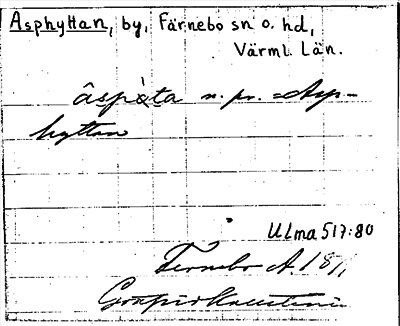 Asphyttan, by, Färnebo sn o. hd,
Värml. Län.
âspàta n. pr. = Asp-
hyttan
ULma 517:80
Fernebo A. 1